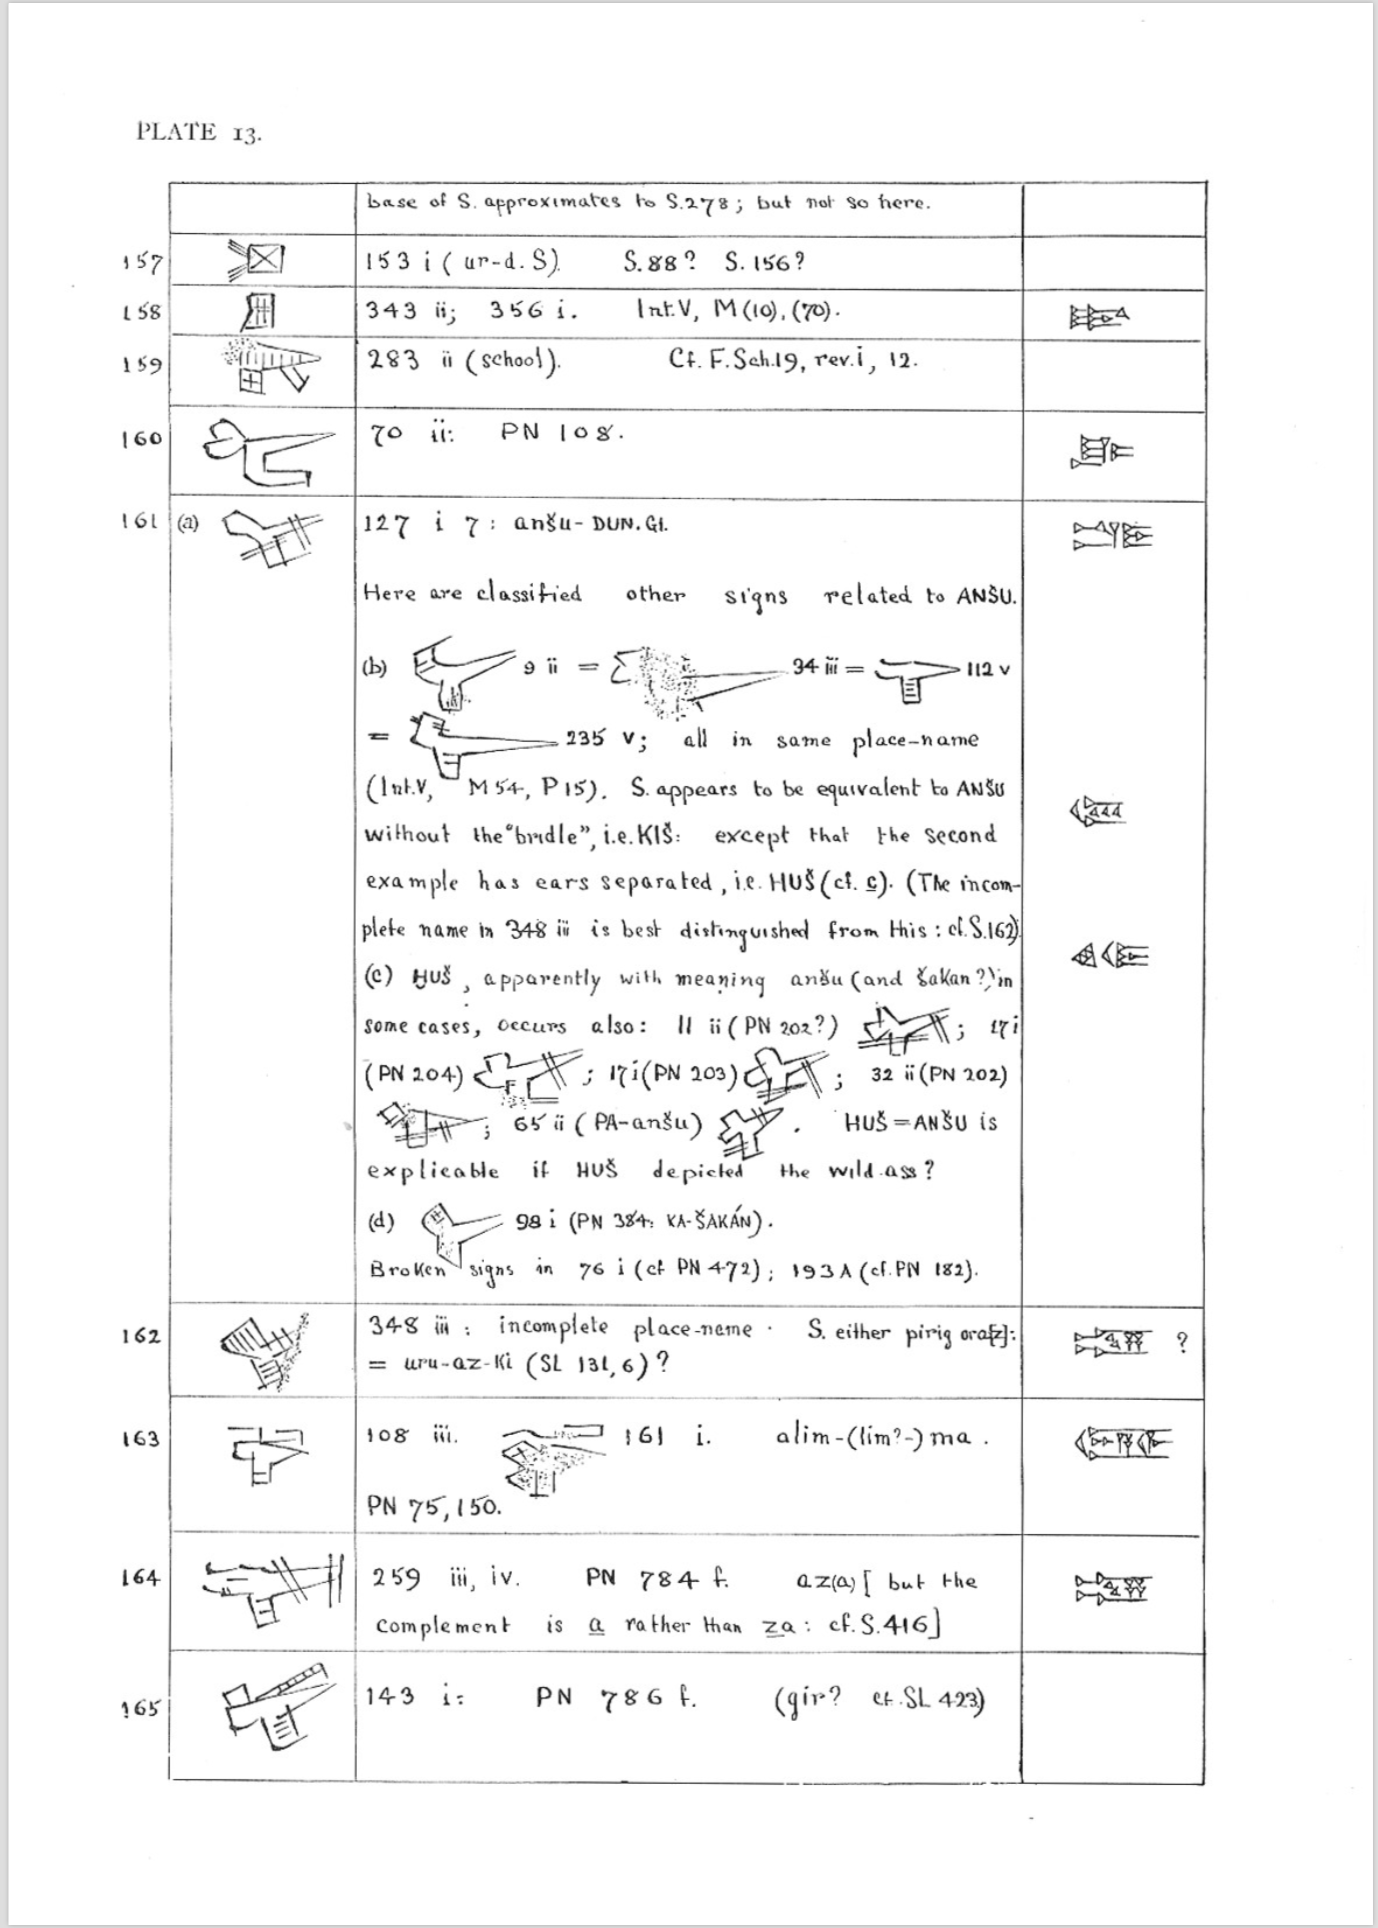 PLATE 13.
base of S. approximates to S.278; but not so here.
157 153 i (ur-d. S). S.88? S.156?
158 343 ii; 356 i. Int.V, M(10), (70).
159 283 ii (school). Cf. F.Sch.19, rev.i, 12.
160 70 ii: PN 108.
161 (a) 127 i 7: anšu-DUN.GI.
Here are classified other signs related to ANŠU.
(b) 9 ii = 34 iii = 112 v
= 235 v; all in same place-name
(Int.V, M54, P15). S. appears to be equivalent to ANŠU
without the "bridle", i.e. KIŠ: except that the second
example has ears separated, i.e. HUŠ (cf. c). (The incom-
plete name in 348 iii is best distinguished from this: cf. S.162)
(c) HUŠ, apparently with meaning anšu (and šakan?) in
some cases, occurs also: 11 ii (PN 202?) ; 17 i
(PN 204) ; 17 i (PN 203) ; 32 ii (PN 202)
; 65 ii (PA-anšu) . HUŠ = ANŠU is
explicable if HUŠ depicted the wild ass?
(d) 98 i (PN 384: KA-ŠAKÁN).
Broken signs in 76 i (cf PN 472); 193A (cf. PN 182).
162 348 iii: incomplete place-name. S. either pirig or a[z]: ?
= uru-az-ki (SL 131,6)?
163 108 iii. 161 i. alim-(lim?-)ma.
PN 75, 150.
164 259 iii, iv. PN 784 f. az(a) [but the
complement is a rather than za: cf. S.416]
165 143 i: PN 786 f. (gir? cf. SL 423)